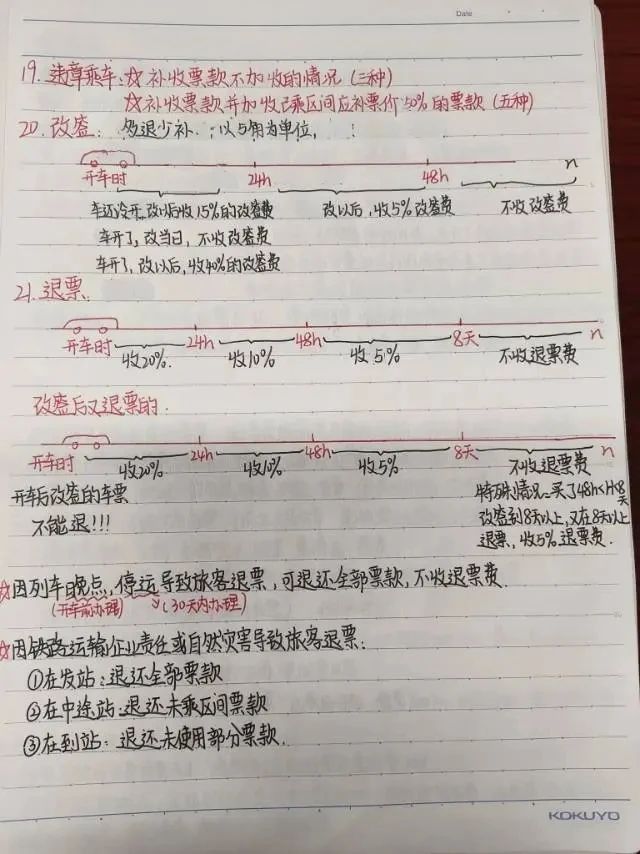 Date
19. 违章乘车：☆补收票款不加收的情况（三种）
☆补收票款并加收已乘区间应补票价50%的票款（五种）
20. 改签：多退少补．；以5角为单位，
开车时 24h 48h n
车还冷开，改以后收15%的改签费 改以后，收5%改签费 不收改签费
车开了，改当日，不收改签费
车开了，改以后，收40%的改签费
21. 退票．
开车时 24h 48h 8天 n
收20%. 收10% 收5% 不收退票费
改签后又退票的．
开车时 24h 48h 8天 n
收20% 收10% 收5% 不收退票费
开车后改签的车票
不能退!!!
特殊情况～买了48h<H<8天
改签到8天以上，又在8天以上
退票，收5%退票费．
☆因列车晚点，停运导致旅客退票，可退还全部票款，不收退票费．
（开车前办理）（30天内办理）
☆因铁路运输企业责任或自然灾害导致旅客退票：
①在发站：退还全部票款
②在中途站：退还未乘区间票款
③在到站：退还未使用部分票款．
KOKUYO